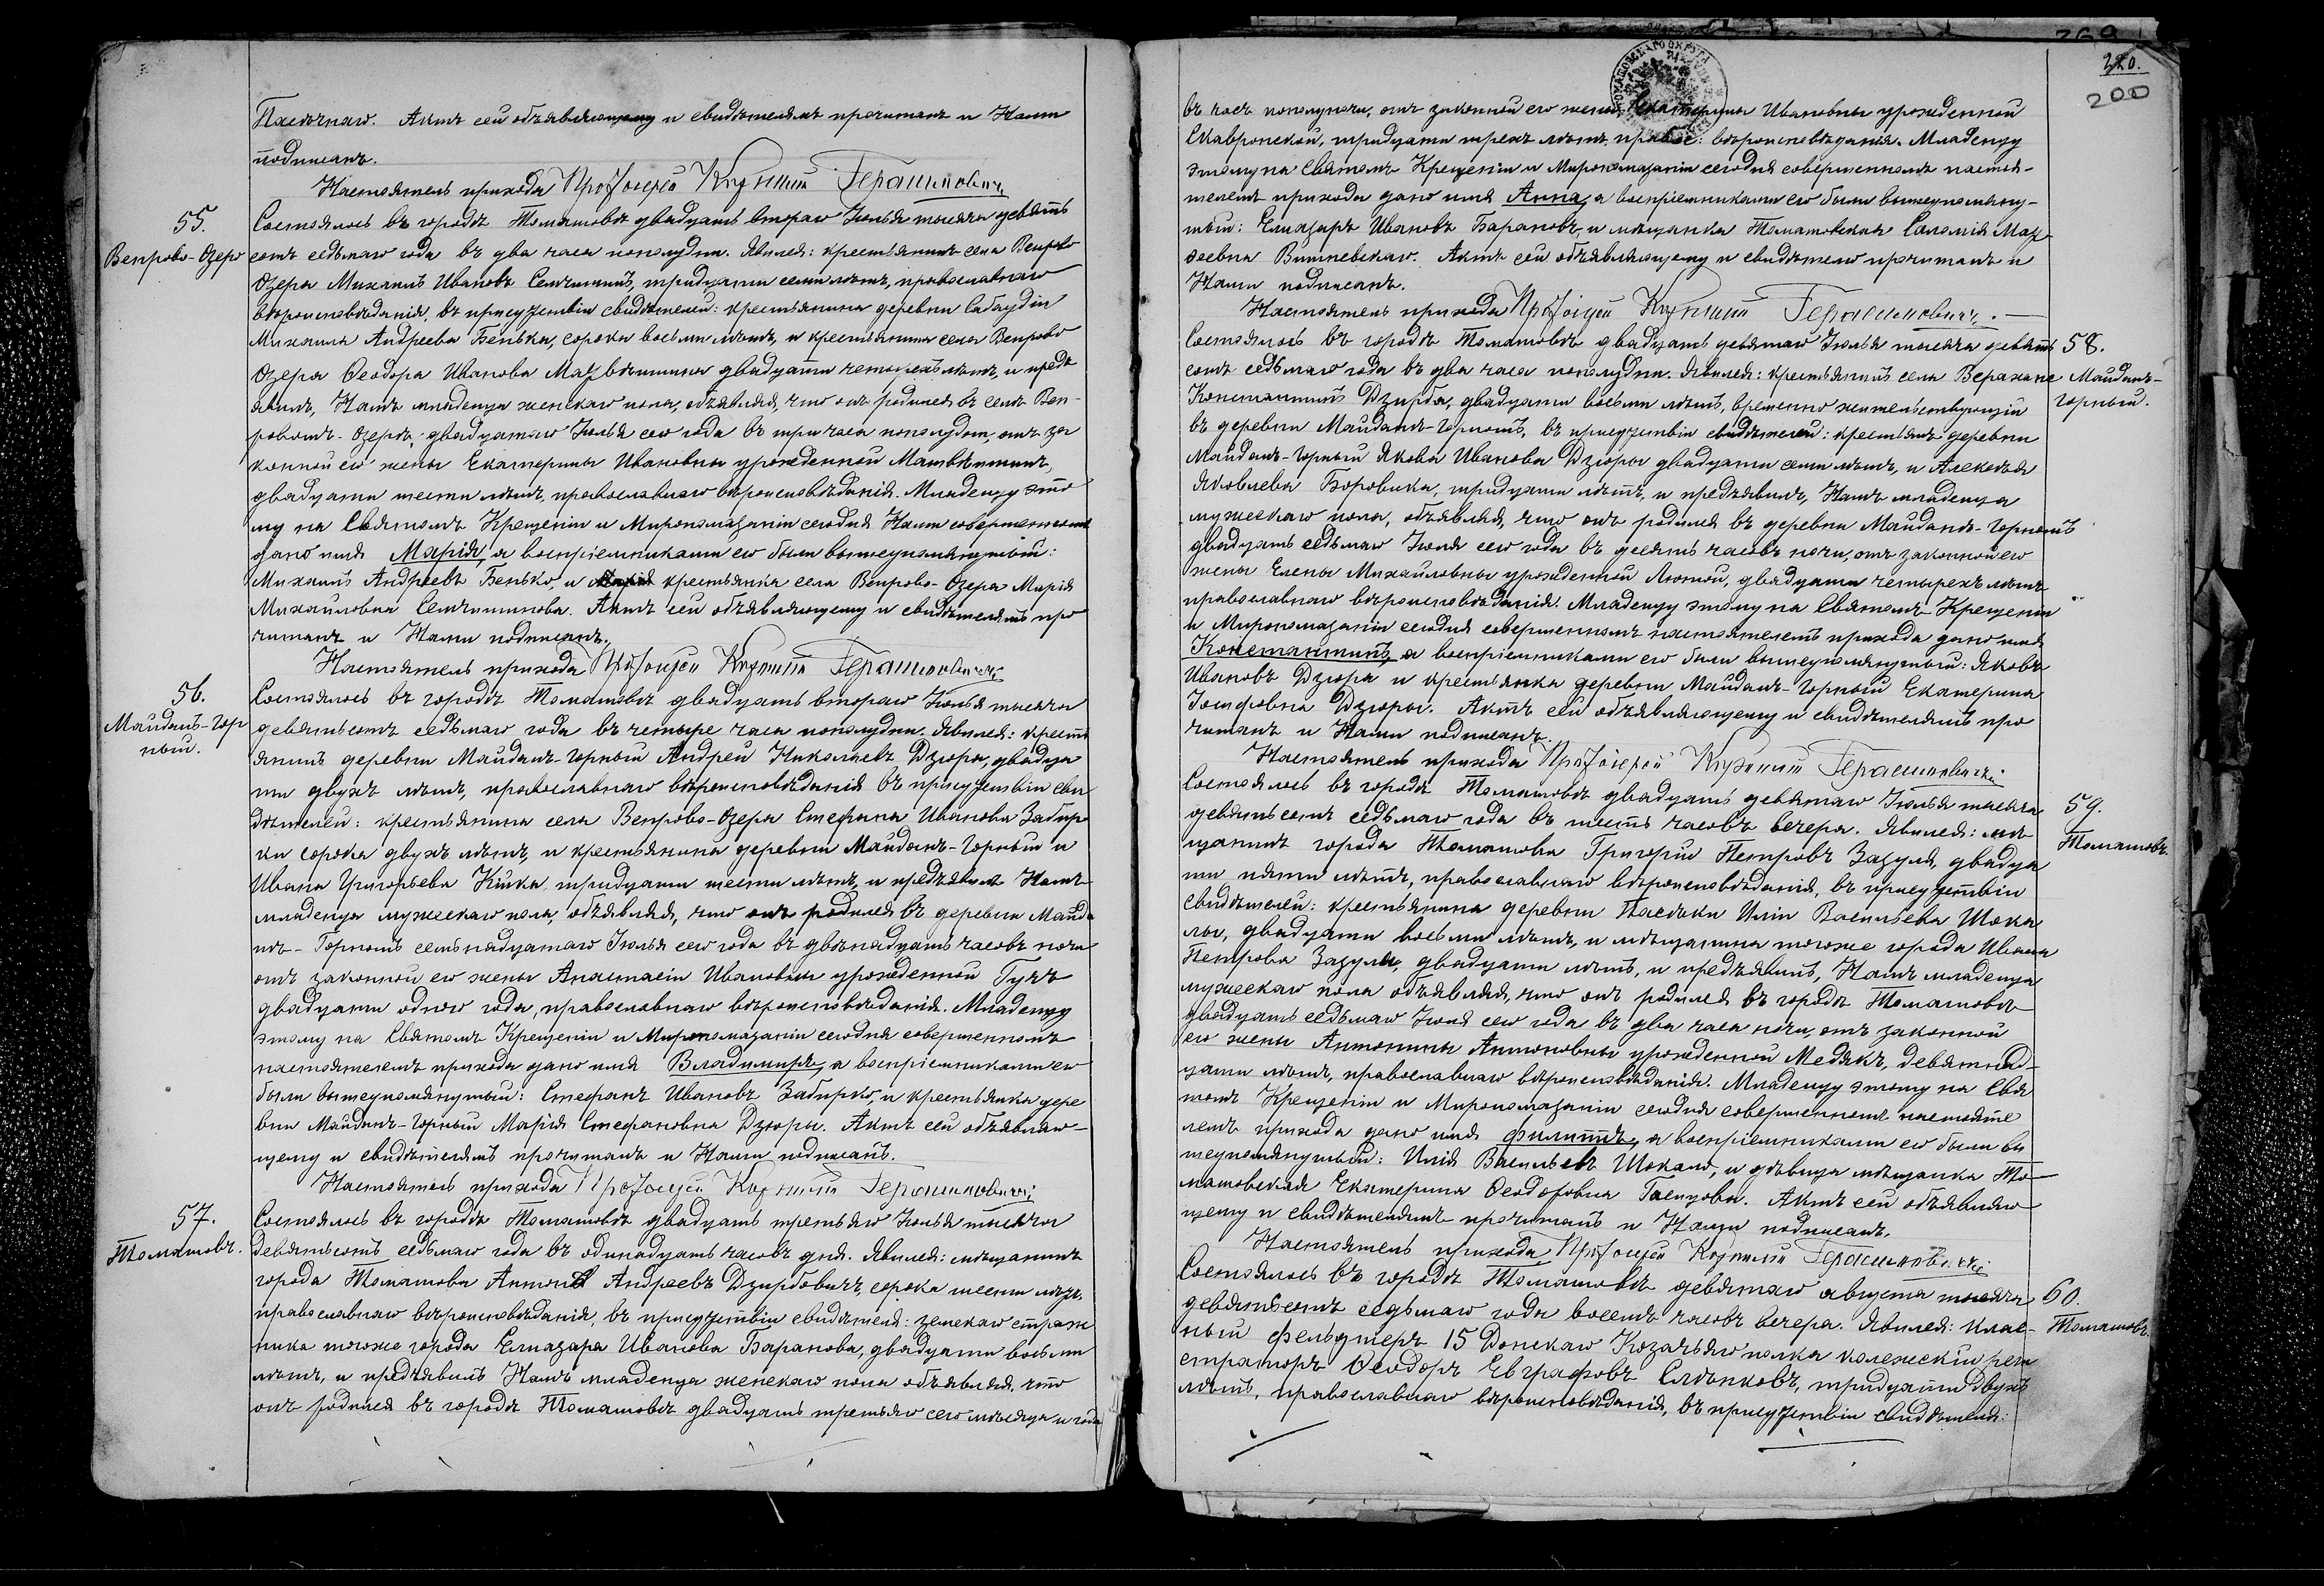 Пасѣчная. Актъ сей объявляющему и свидѣтелямъ прочитанъ и Нами
подписанъ.
Настоятель прихода Протоіерей Герасимовичъ
55.
Вепрово-Озеро
Состоялось въ городѣ Томашовѣ двадцать второго Іюля тысяча девять
сотъ седьмаго года въ два часа пополудни. Явился: крестьянинъ села Вепрово
Озера Михаилъ Ивановъ Семчишинъ, тридцати семи лѣтъ, православнаго
вѣроисповѣданія, въ присутствіи свидѣтелей: крестьянина деревни
Михаила Андреева Бенька, сорока восьми лѣтъ, и крестьянина села Вепрово
Озера Ѳеодора Иванова двадцати четырехъ лѣтъ, и предъ
явилъ, Намъ младенца женскаго пола, объявляя, что онъ родился въ селѣ Веп-
ровомъ-Озерѣ, двадцатаго Іюля сего года въ три часа пополудни, отъ за
конной его жены Екатерины Ивановны урожденной Матвѣишинъ,
двадцати шести лѣтъ, православнаго вѣроисповѣданія. Младенцу это
му на Святомъ Крещеніи и Миропомазаніи сегодня Нами совершенномъ
дано имя Марія, а воспріемниками его были вышеупомянутый:
Михаилъ Андреевъ Бенько, и крестьянка села Вепрово-Озера Марія
Михайловна Семчишинова. Актъ сей объявляющему и свидѣтелямъ про
читанъ и Нами подписанъ.
Настоятель прихода Протоіерей Герасимовичъ
56.
Майданъ-Гор
ный.
Состоялось въ городѣ Томашовѣ двадцать второго Іюля тысяча
девятьсотъ седьмаго года въ четыре часа пополудни. Явился: кресть
янинъ деревни Майданъ-Горный Андрей Николаевъ Дзюра, двадца
ти двухъ лѣтъ, православнаго вѣроисповѣданія въ присутствіи сви
дѣтелей: крестьянина села Вепрово-Озера Стефана Иванова Забир
ки сорока двухъ лѣтъ, и крестьянина деревни Майданъ-Горный и
Ивана Григорьева Кішка, тридцати шести лѣтъ, и предъявилъ Намъ
младенца мужескаго пола, объявляя, что онъ родился въ деревни Майда
нъ-Горномъ семьнадцатаго Іюля сего года въ двѣнадцать часовъ ночи
отъ законной его жены Анастасіи Ивановны урожденной Гукъ
двадцати одного года, православнаго вѣроисповѣданія. Младенцу
этому на Святомъ Крещеніи и Миропомазаніи сегодня совершенномъ
настоятелемъ прихода дано имя Владимиръ, а воспріемниками его
были вышеупомянутый: Стефанъ Ивановъ Забирко, и крестьянка дере
вни Майданъ-Горный Марія Стефановна Дзюры. Актъ сей объявляю-
щему и свидѣтелямъ прочитанъ и Нами подписанъ.
Настоятель прихода Протоіерей Герасимовичъ
57.
Томашовъ.
Состоялось въ городѣ Томашовѣ двадцать третьяго Іюля тысяча
девятьсотъ седьмаго года въ одинадцать часовъ дня. Явился: мѣщанинъ
города Томашова Антоній Андреевъ Дзирбовичъ, сорока шести лѣтъ,
православнаго вѣроисповѣданія, въ присутствіи свидѣтеля: земскаго страж
ника тогоже города Елиазара Иванова Баранова, двадцати восьми
лѣтъ, и предъявилъ Намъ младенца женскаго пола объявляя, что
онъ родился въ городѣ Томашовѣ двадцать третьяго сего мѣсяца и года
220.
200
въ часъ пополуночи, отъ законной его жены Екатерины Ивановны урожденной
Скавронской, тридцати трехъ лѣтъ, правос: вѣроисповѣданія. Младенцу
этому на Святомъ Крещеніи и Миропомазаніи сегодня совершенномъ настоя-
телемъ прихода дано имя Анна, а воспріемниками его были вышеупомяну-
тый: Елиазаръ Ивановъ Барановъ, и мѣщанка Томашовская Саломія
Вишневская. Актъ сей объявляющему и свидѣтелю прочитанъ и
Нами подписанъ.
Настоятель прихода Протоіерей Герасимовичъ.
58.
Майданъ-
Горный.
Состоялось въ городѣ Томашовѣ двадцать девятаго Іюля тысяча девять
сотъ седьмаго года въ два часа пополудни. Явился: крестьянинъ села Верахане
Константинъ Дзирба, двадцати восьми лѣтъ, временно жительствующій
въ деревни Майданъ-Горномъ, въ присутствіи свидѣтелей: крестьянъ деревни
Майданъ-Горный Якова Иванова Дзюры двадцати семи лѣтъ, и Алексѣя
Яковлева Боровика, тридцати лѣтъ, и предъявилъ, Намъ младенца
мужескаго пола, объявляя, что онъ родился въ деревни Майданъ-Горномъ
двадцать седьмаго Іюля сего года въ десять часовъ ночи, отъ законной его
жены Елены Михайловны урожденной Лютой, двадцати четырехъ лѣтъ
православнаго вѣроисповѣданія. Младенцу этому на Святомъ Крещеніи
и Миропомазаніи сегодня совершенномъ настоятелемъ прихода дано имя
Константинъ, а воспріемниками его были вышеупомянутый: Яковъ
Ивановъ Дзюра и крестьянка деревни Майданъ-Горный Екатерина
Іосифовна Дзюры. Актъ сей объявляющему и свидѣтелямъ про
читанъ и Нами подписанъ.
Настоятель прихода Протоіерей Герасимовичъ
59.
Томашовъ.
Состоялось въ городѣ Томашовѣ двадцать девятаго Іюля тысяча
девятьсотъ седьмаго года въ шесть часовъ вечера. Явился: мѣ
щанинъ города Томашова Григорій Петровъ Зазуля, двадца
ти пяти лѣтъ, православнаго вѣроисповѣданія, въ присутствіи
свидѣтелей: крестьянина деревни Пасѣки Иліи Васильева Шока
лы, двадцати восьми лѣтъ, и мѣщанина тогоже города Ивана
Петрова Зазули, двадцати лѣтъ, и предъявилъ, Намъ младенца
мужескаго пола объявляя, что онъ родился въ городѣ Томашовѣ
двадцать седьмаго Іюля сего года въ два часа ночи, отъ законной
его жены Антонины Антоновны урожденной Медякъ, девятнад-
цати лѣтъ, православнаго вѣроисповѣданія. Младенцу этому на Свя
томъ Крещеніи и Миропомазаніи сегодня совершенномъ настояте
лемъ прихода дано имя Филиппъ, а воспріемниками его были вы
шеупомянутый: Илія Васильевъ Шокало, и дѣвица мѣщанка То-
машовская Екатерина Ѳеодоровна. Актъ сей объявляю
щему и свидѣтелямъ прочитанъ и Нами подписанъ.
Настоятель прихода Протоіерей Герасимовичъ
60.
Томашовъ.
Состоялось въ городѣ Томашовѣ девятаго августа тысяча
девятьсотъ седьмаго года восемь часовъ вечера. Явился: клас-
ный фельдшеръ 15 Донскаго Козачьяго полка колежскій реги
страторъ Ѳеодоръ Евграфовъ Слѣпковъ, тридцати двухъ
лѣтъ, православнаго вѣроисповѣданія, въ присутствіи свидѣтеля: